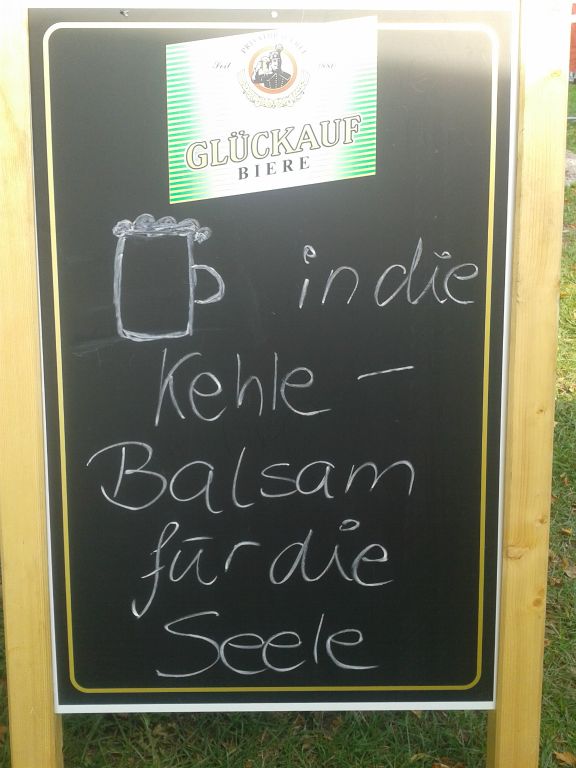 PRIVATBRAUEREI
Seit 1880
GLÜCKAUF
BIERE
in die
Kehle –
Balsam
für die
Seele